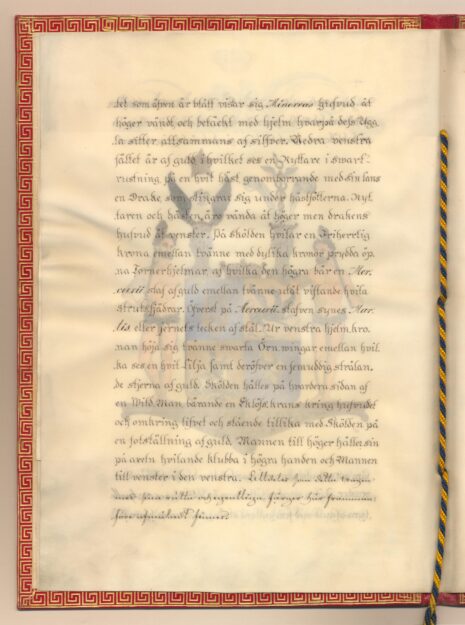 det som även är blått visar sig Minervas hufvud åt
höger vändt och betäckt med hjelm hvarpå dess Ugg-
la sitter altsammans af silfver. Nedra venstra
fältet är af guld i hvilket ses en Ryttare i swart
rustning på en hvit häst genomborrande med sin lans
en Drake som slingrar sig under hästfötterna. Ryt-
taren och hästen är vända åt höger men drakens
hufvud åt venster. På skölden hvilar en Friherrlig
krona emellan tvänne med dylika kronor prydda öp-
na Tornerhjelmar af hvilka den högra bär en Mer-
curii staf af guld emellan tvänne utåt viftande hvita
strutsfjädrar. Öfverst på Mercurii stafven synes Mar-
tis eller jernets tecken af stål. Ur venstra hjelm.kro-
nan höja sig tvänne swarta Örn wingar emellan hvil-
ka ses en hvit Lilja samt deröfver en sexuddig strålan-
de stjerna af guld. Skölden hålles på hvardera sidan af
en Wild Man bärande en Eklöfs.krans kring hufvudet
och omkring lifvet och stående tillika med Skölden på
en fotställning af guld. Mannen till höger håller sin
på axeln hvilande klubba i högra handen och Mannen
till venster i den venstra. Alldeles som detta wapen
med sina rätta och egentliga färger här
före afmåladt finnes.